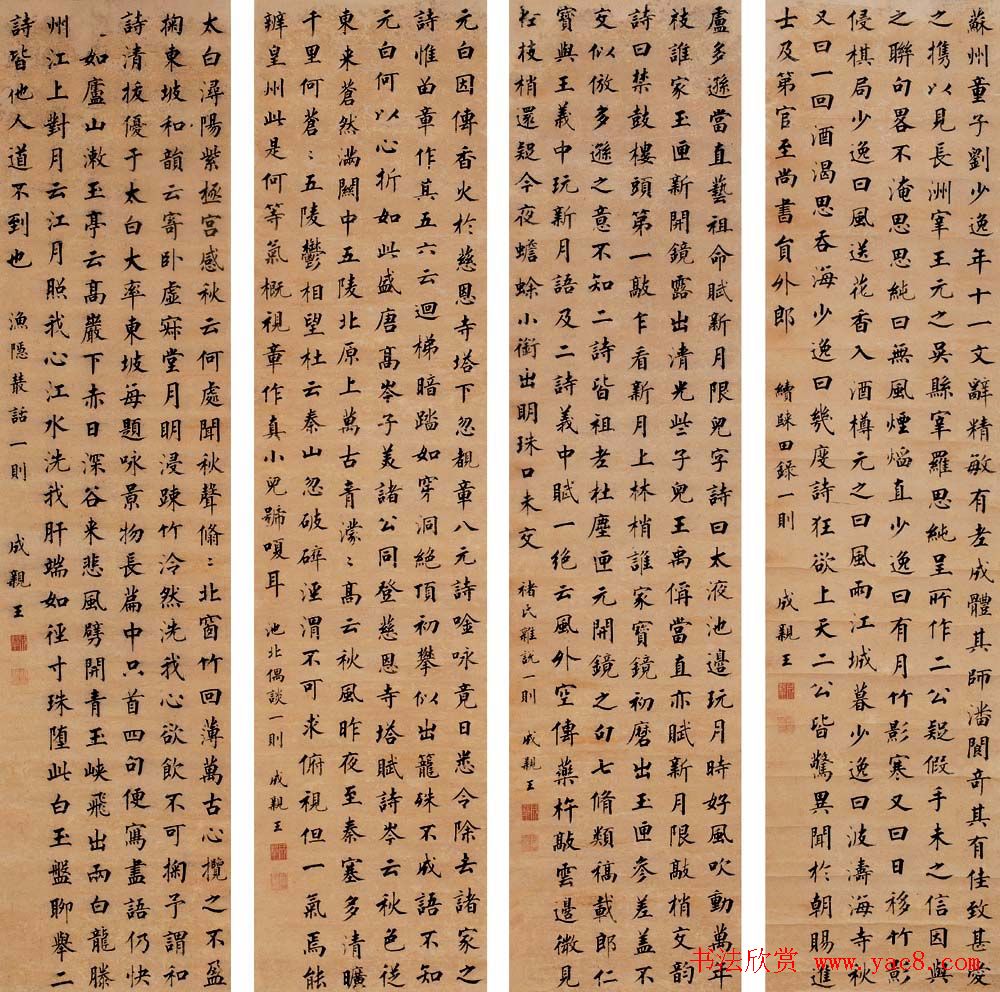 蘇州童子劉少逸年十一文辭精敏有老成體其師潘閬奇其有佳致甚愛
之攜以見長洲宰王元之吳縣宰羅思純呈所作二公疑假手未之信因與
之聯句畧不淹思思純曰無風煙燄直少逸曰有月竹影寒又曰日移竹影
侵棋局少逸曰風送花香入酒樽元之曰風雨江城暮少逸曰波濤海寺秋
又曰一回酒渴思吞海少逸曰幾度詩狂欲上天二公皆驚異聞於朝賜進
士及第官至尚書員外郎 續歸田錄一則 成親王
盧多遜當直藝祖命賦新月限兒字詩曰太液池邊玩月時好風吹動萬年
枝誰家玉匣新開鏡露出清光些子兒王禹偁當直亦賦新月限敲梢交韵
詩曰禁鼓樓頭第一敲乍看新月上林梢誰家寶鏡初磨出玉匣參差盖不
交似倣多遜之意不知二詩皆祖老杜塵匣元開鏡之句七脩類稿載郎仁
寶與王義中玩新月語及二詩義中賦一絕云風外空傳藥杵敲雲邊微見
桂枝梢還疑今夜蟾蜍小銜出明珠口未交 褚氏雜說一則 成親王
元白因傳香火於慈恩寺塔下忽覩章八元詩唫咏竟日悉令除去諸家之
詩惟留章作其五六云迴梯暗踏如穿洞絕頂初攀似出籠殊不成語不知
元白何以心折如此盛唐高岑子美諸公同登慈恩寺塔賦詩岑云秋色從
東来蒼然滿關中五陵北原上萬古青濛〻高云秋風昨夜至秦塞多清曠
千里何蒼〻五陵鬱相望杜云秦山忽破碎涇渭不可求俯視但一氣焉能
辨皇州此是何等氣概視章作真小兒號嗄耳 池北偶談一則 成親王
太白潯陽紫極宮感秋云何處聞秋聲翛〻北窗竹回薄萬古心攬之不盈
掬東坡和韻云寄卧虛寂堂月明浸疎竹泠然洗我心欲飲不可掬予謂和
詩清拔優于太白大率東坡每題咏景物長篇中只首四句便寫盡語仍快
如廬山漱玉亭云高巖下赤日深谷来悲風劈開青玉峽飛出兩白龍滕
州江上對月云江月照我心江水洗我肝端如徑寸珠墮此白玉盤聊舉二
詩皆他人道不到也 漁隱叢話一則 成親王
书法欣赏 www.yac8.com